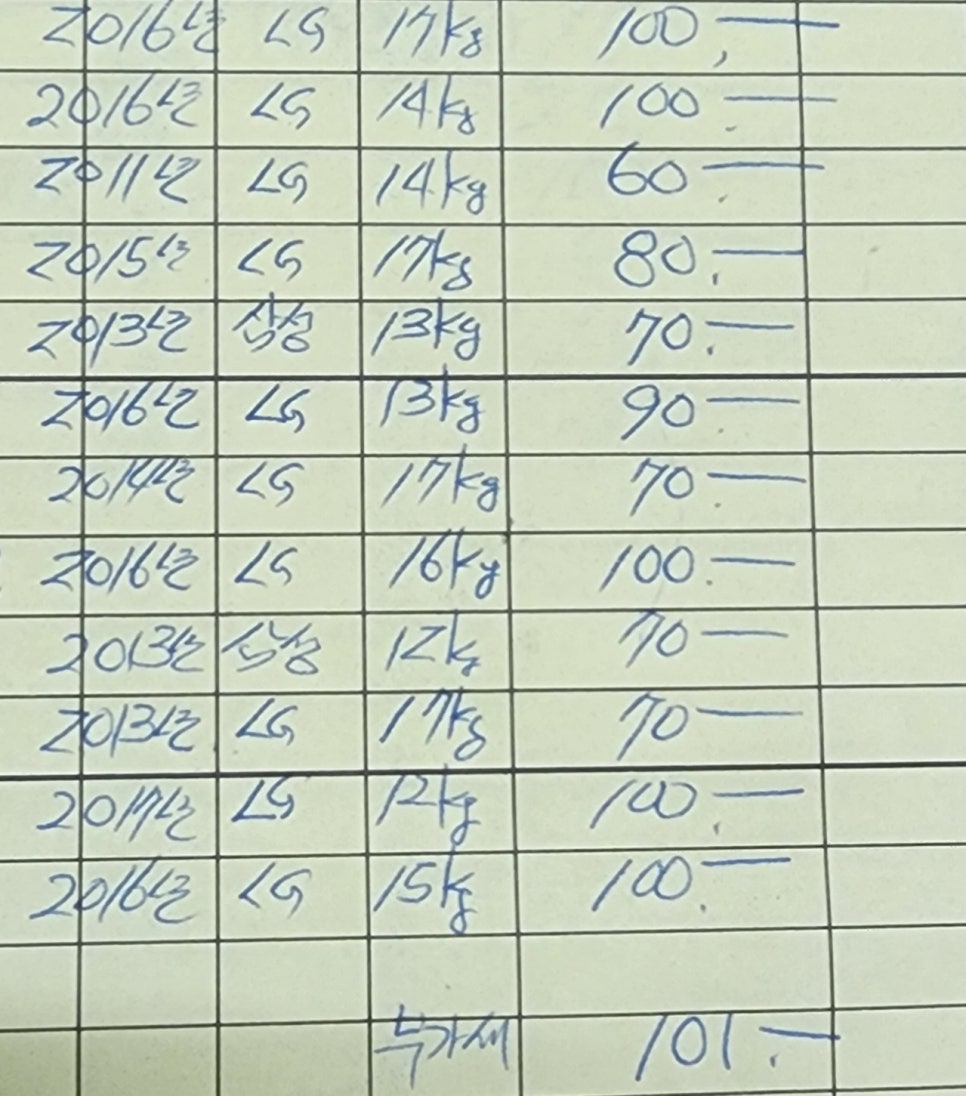 2016년 LG 17kg 100,—
2016년 LG 14kg 100.—
2011년 LG 14kg 60.—
2015년 LG 17kg 80.—
2013년 삼성 13kg 70.—
2016년 LG 13kg 90—
2014년 LG 17kg 70.—
2016년 LG 16kg 100.—
2013년 삼성 12kg 70—
2013년 LG 17kg 70—
2017년 LG 12kg 100.—
2016년 LG 15kg 100.—
부가세 101.—